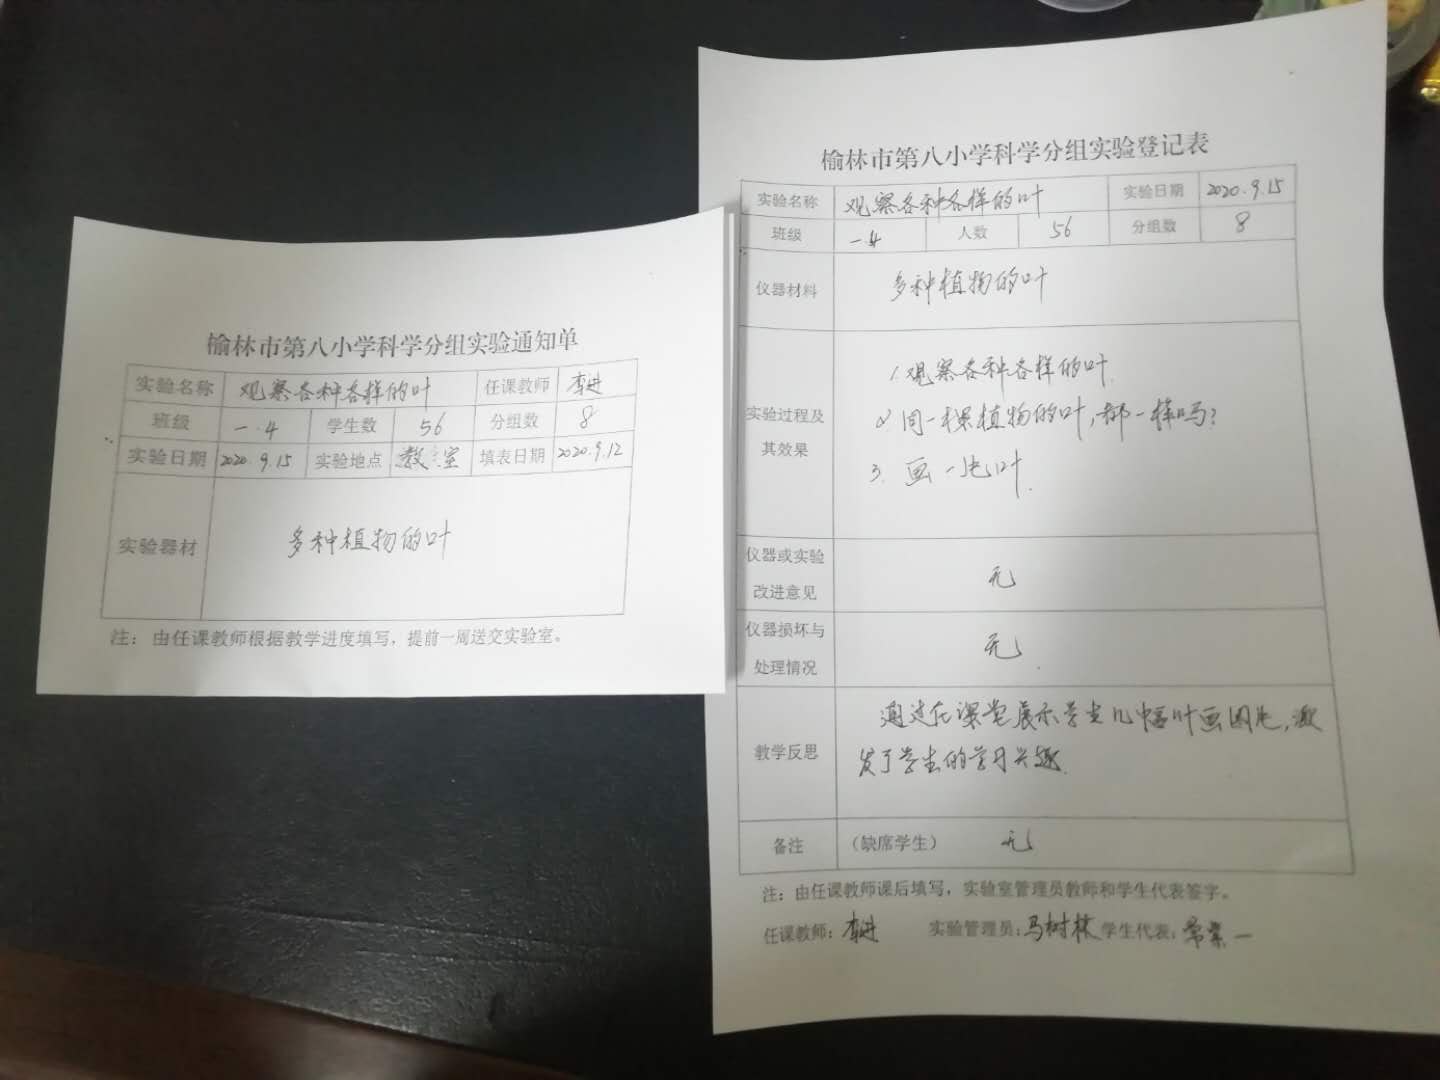 榆林市第八小学科学分组实验通知单
实验名称 观察各种各样的叶 任课教师 李进
班级 一.4 学生数 56 分组数 8
实验日期 2020.9.15 实验地点 教室 填表日期 2020.9.12
实验器材 多种植物的叶
注：由任课教师根据教学进度填写，提前一周送交实验室。
榆林市第八小学科学分组实验登记表
实验名称 观察各种各样的叶 实验日期 2020.9.15
班级 一.4 人数 56 分组数 8
仪器材料 多种植物的叶
实验过程及其效果
1.观察各种各样的叶.
2.同一棵植物的叶,都一样吗?
3.画一片叶.
仪器或实验改进意见 无
仪器损坏与处理情况 无.
教学反思
通过在课堂展示学生几幅叶画图片,激
发了学生的学习兴趣.
备注 （缺席学生） 无
注：由任课教师课后填写，实验室管理员教师和学生代表签字。
任课教师：李进 实验管理员：马树林 学生代表：一